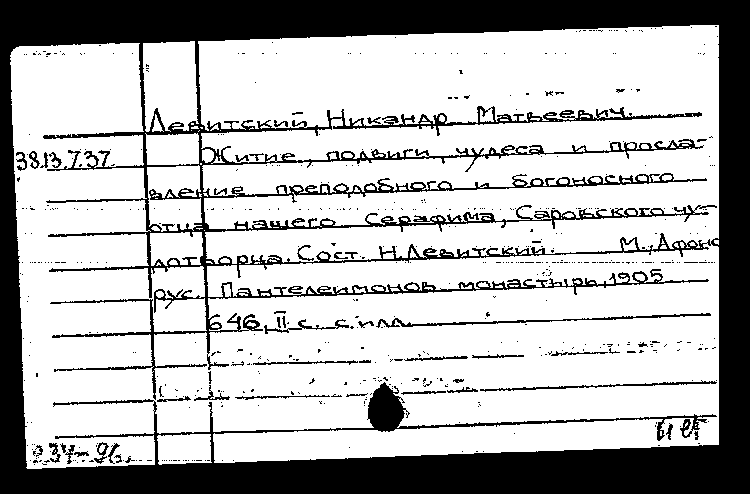 Левитский, Никандр Матвеевич.
38.13.7.37. Житие, подвиги, чудеса и просла-
вление преподобного и богоносного
отца нашего Серафима, Саровского чу-
дотворца. Сост. Н.Левитский. М., Афоно
рус. Пантелеимонов монастырь, 1905
646, II с. с илл.
234-96.